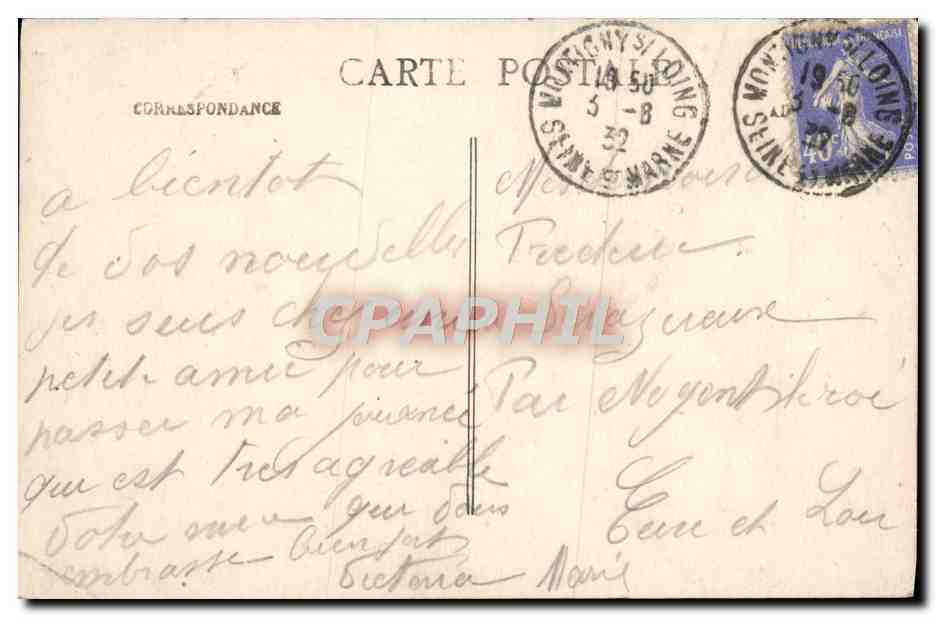 CARTE POSTALE
CORRESPONDANCE
MONTIGNY S/ LOING
19 50
3 -8
32
SEINE ET MARNE
MONTIGNY S/ LOING
19 50
3 -8
32
SEINE ET MARNE
40c
POS
a bientot
de vos nouvelles
je suis chez une
petite amie pour
passer ma
qui est tres agreable
votre qui vous
embrasse bien fort
Victoria Marie
Par Nogent le roi
Eure et Loir
CPAPHIL